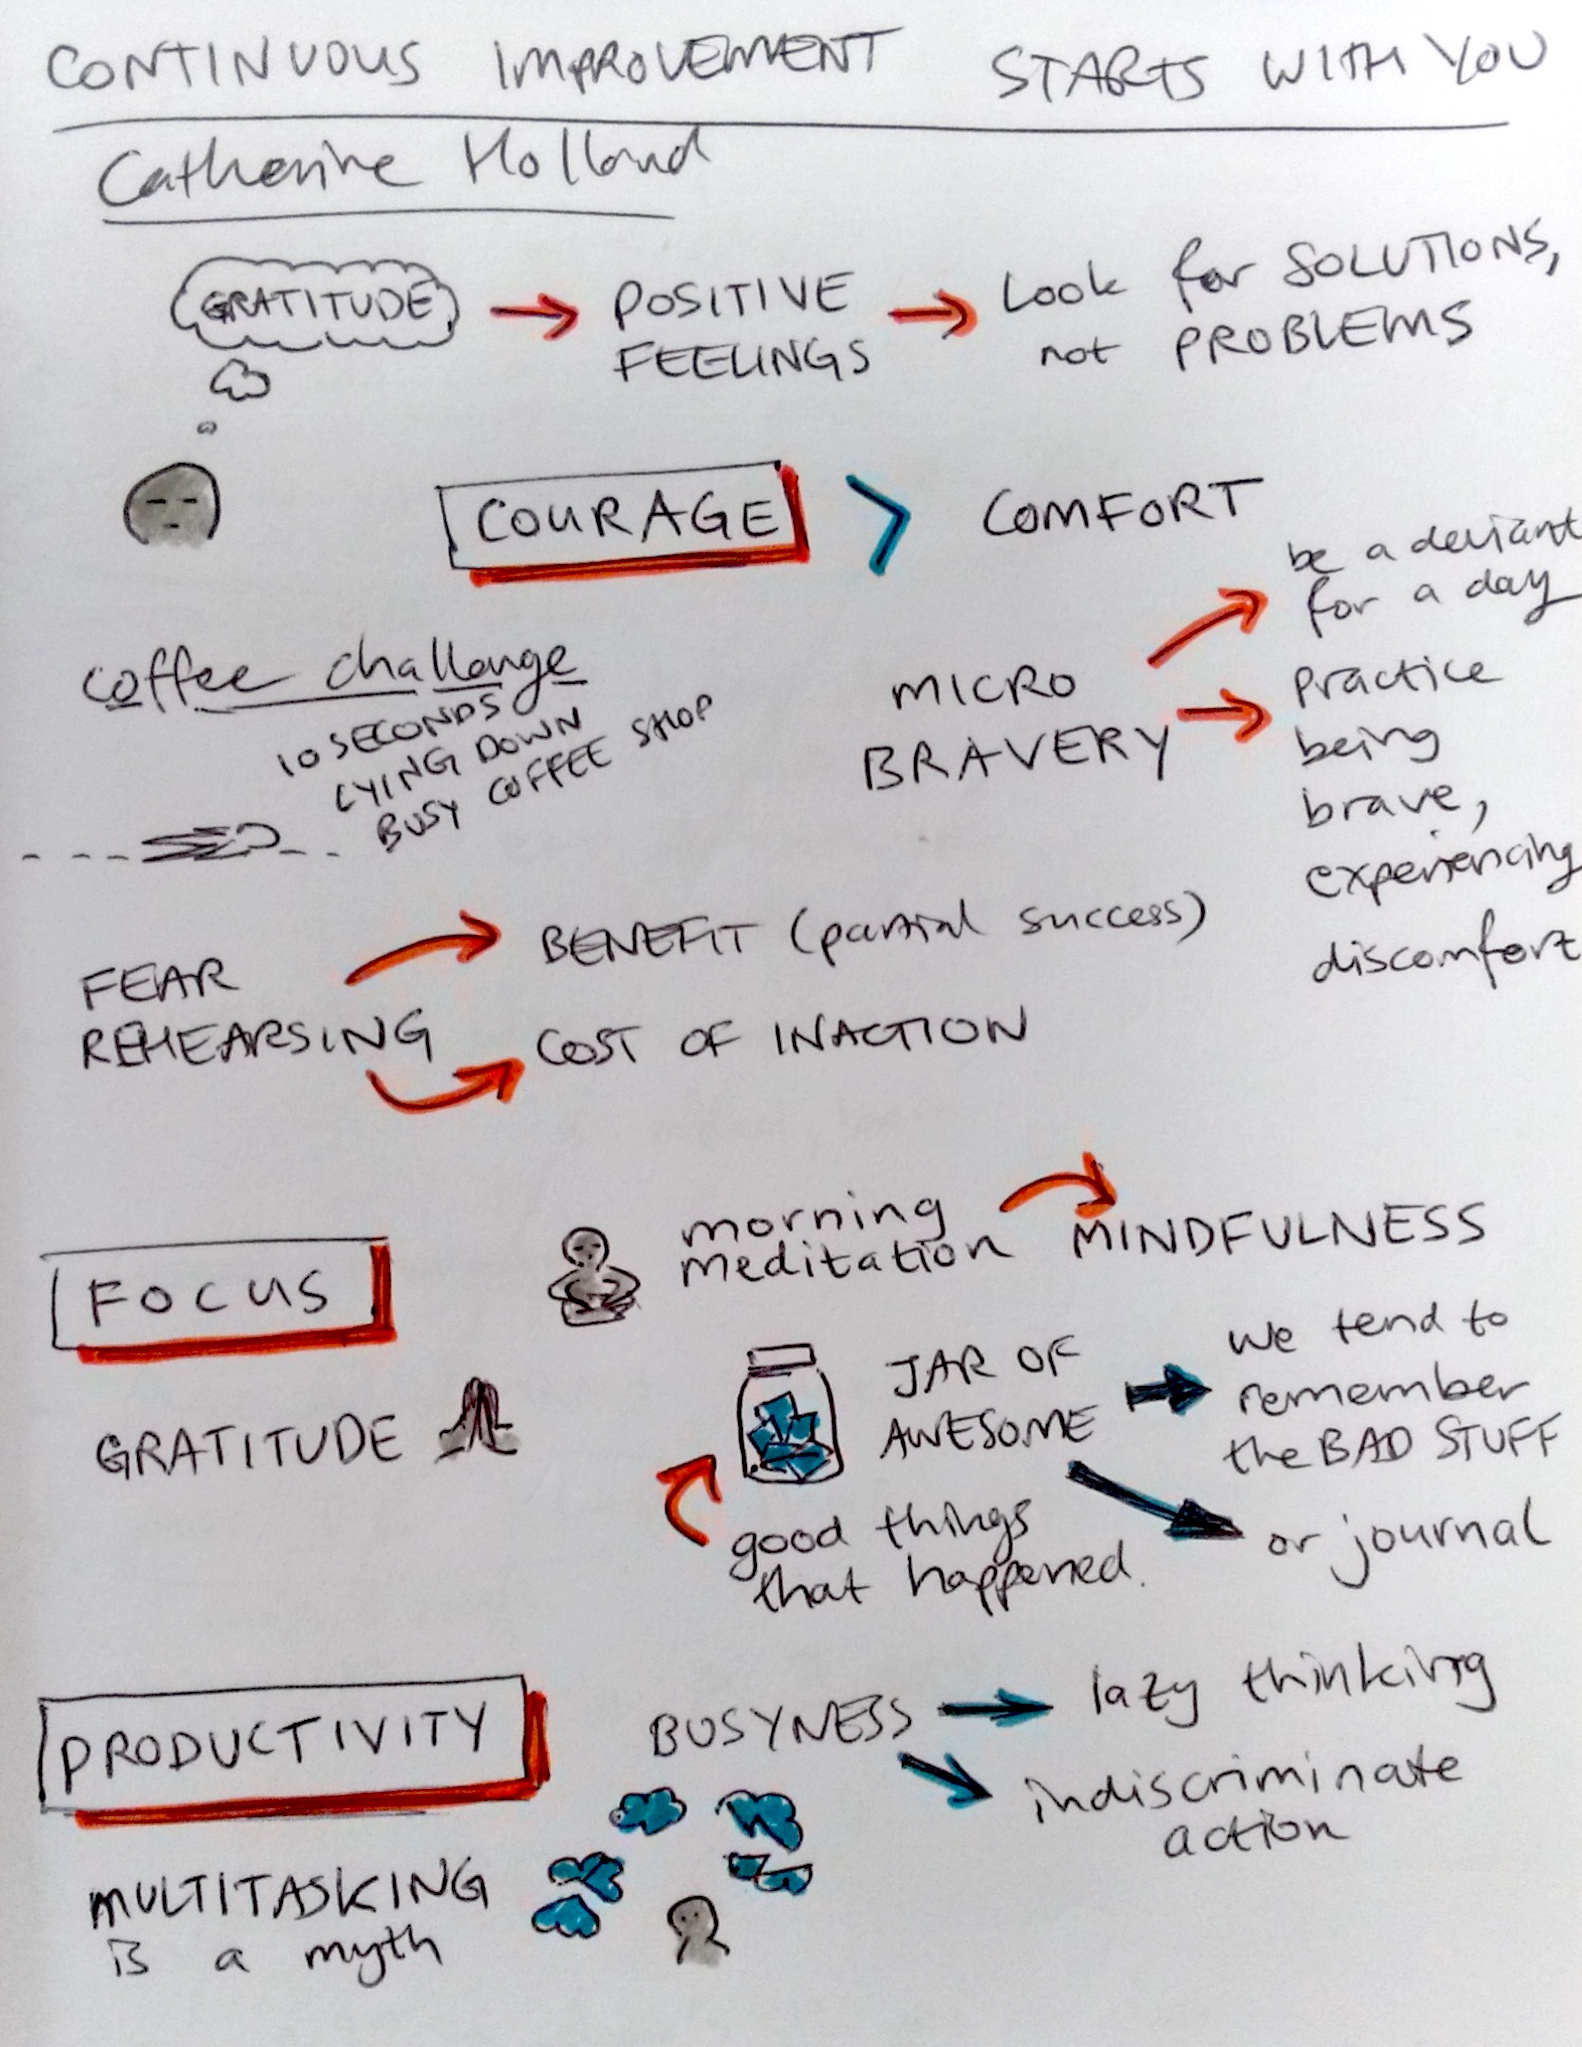 CONTINUOUS IMPROVEMENT STARTS WITH YOU
Catherine Holland
GRATITUDE
POSITIVE
FEELINGS
Look for SOLUTIONS,
not PROBLEMS
COURAGE > COMFORT
coffee challenge
10 SECONDS
LYING DOWN
BUSY COFFEE SHOP
MICRO
BRAVERY
be a deviant
for a day
practice
being
brave,
experiencing
discomfort
FEAR
REHEARSING
BENEFIT (partial success)
COST OF INACTION
FOCUS
morning
meditation
MINDFULNESS
GRATITUDE
JAR OF
AWESOME
we tend to
remember
the BAD STUFF
or journal
good things
that happened.
PRODUCTIVITY
BUSYNESS
lazy thinking
indiscriminate
action
MULTITASKING
is a myth